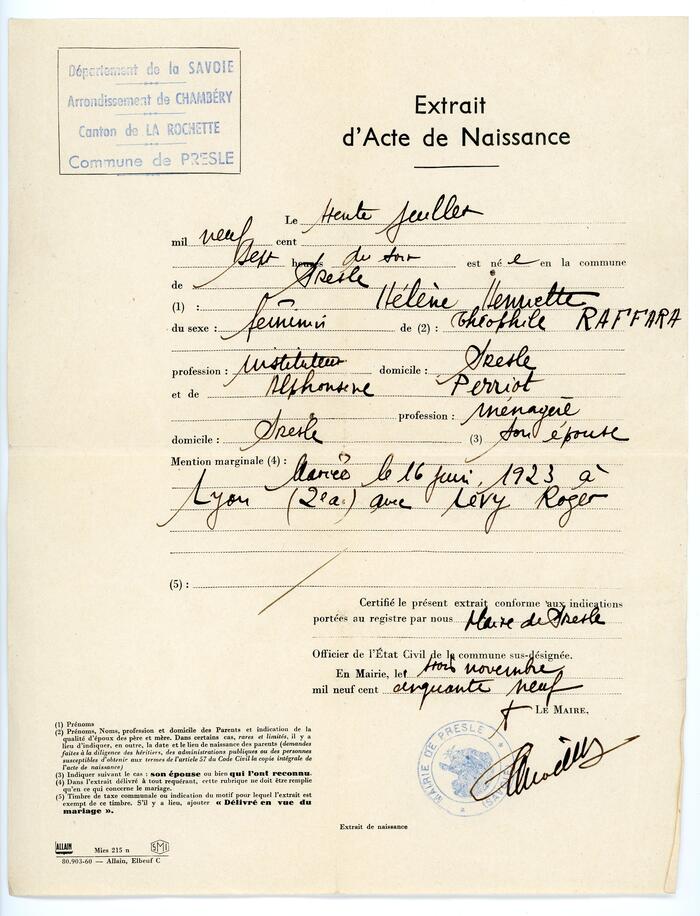 Département de la SAVOIE
Arrondissement de CHAMBÉRY
Canton de LA ROCHETTE
Commune de PRESLE
Extrait
d'Acte de Naissance
Le trente juillet
mil neuf cent
sept heures du soir est né e en la commune
de Presle
(1) : Hélène Henriette
du sexe : féminin de (2) : théophile RAFFARA
profession : instituteur domicile : Presle
et de Alphonsine Perriot
profession : ménagère
domicile : Presle (3) son épouse
Mention marginale (4) : Mariée le 16 juin 1923 à
Lyon (2e a.) avec Lévy Roger
(5) :
Certifié le présent extrait conforme aux indications
portées au registre par nous Maire de Presle
Officier de l'État Civil de la commune sus-désignée.
En Mairie, le trois novembre
mil neuf cent cinquante neuf
LE MAIRE,
MAIRIE DE PRESLE
(SAVOIE)
(1) Prénoms
(2) Prénoms, Noms, profession et domicile des Parents et indication de la
qualité d'époux des père et mère. Dans certains cas, rares et limités, il y a
lieu d'indiquer, en outre, la date et le lieu de naissance des parents (demandes
faites à la diligence des héritiers, des administrations publiques ou des personnes
susceptibles d'obtenir aux termes de l'article 57 du Code Civil la copie intégrale de
l'acte de naissance)
(3) Indiquer suivant le cas : son épouse ou bien qui l'ont reconnu.
(4) Dans l'extrait délivré à tout requérant, cette rubrique ne doit être remplie
qu'en ce qui concerne le mariage.
(5) Timbre de taxe communale ou indication du motif pour lequel l'extrait est
exempt de ce timbre. S'il y a lieu, ajouter « Délivré en vue du
mariage ».
Extrait de naissance
ALLAIN Mies 215 n SMI
80.903-60 — Allain, Elbeuf C